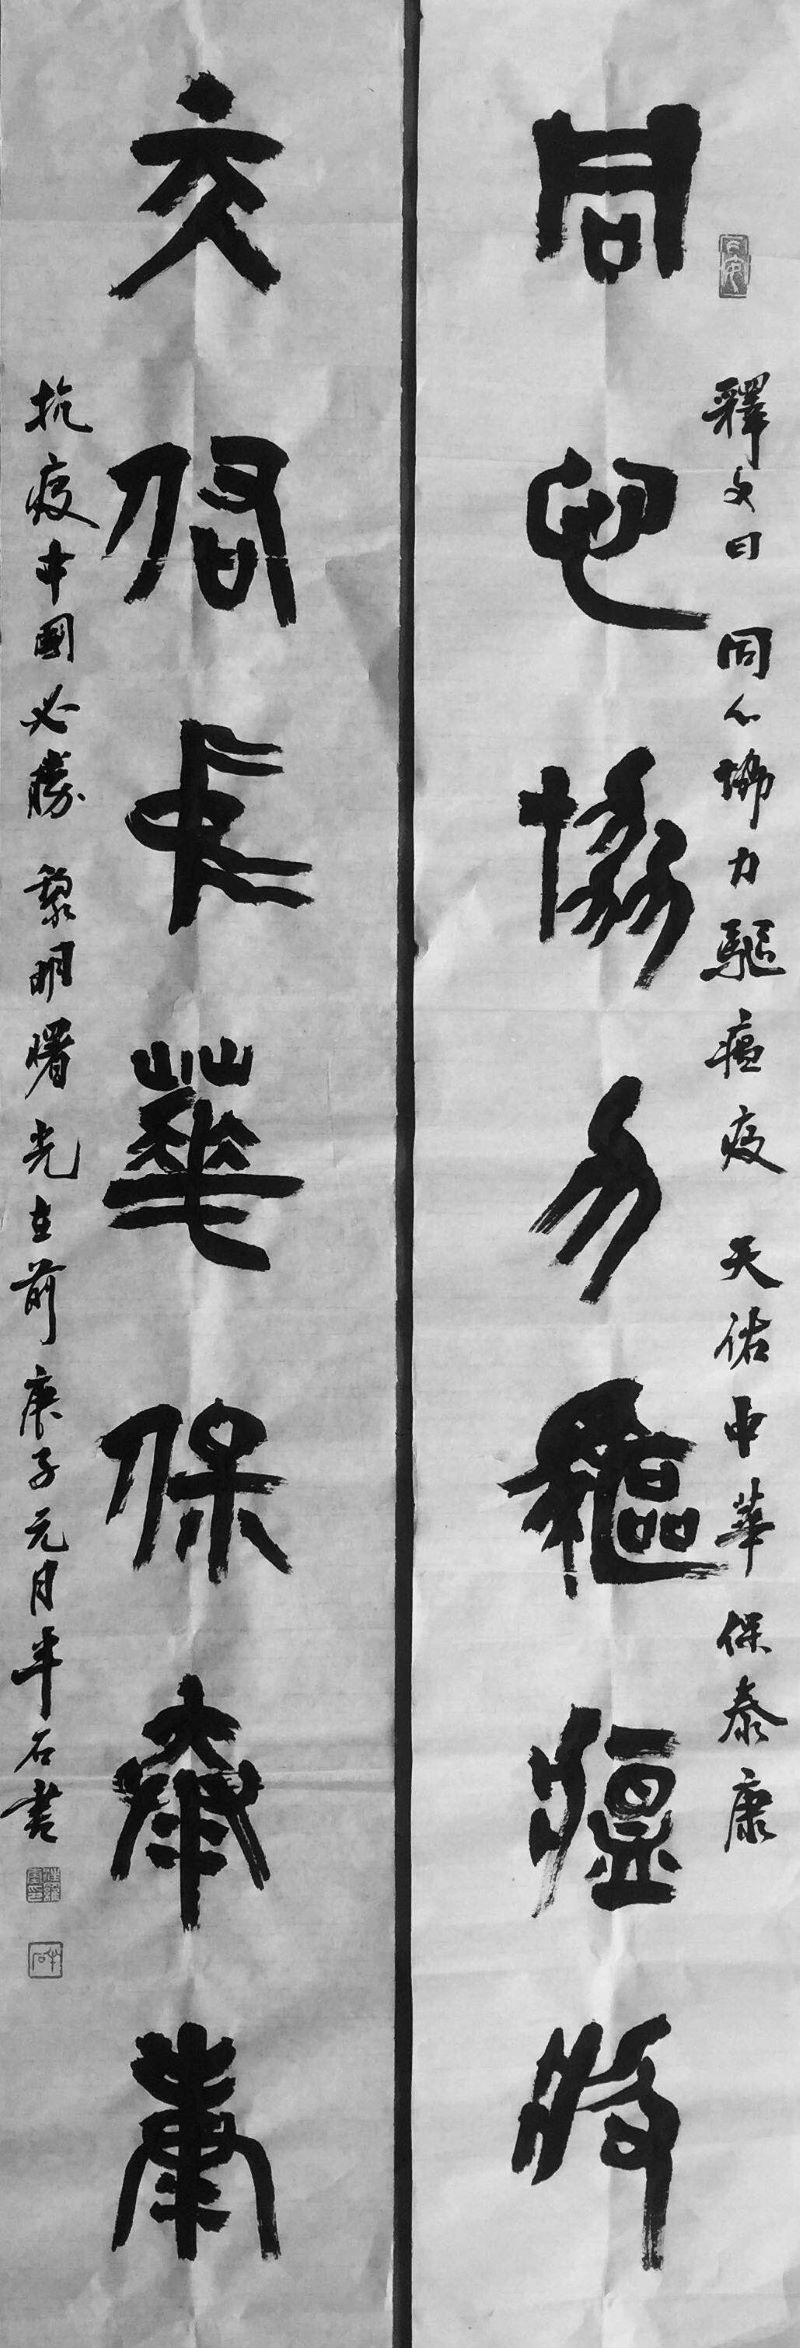 同心協力驅瘟疫
釋文曰 同心協力驅瘟疫 天佑中華保泰康
天佑中華保泰康
抗疫中國必勝 黎明曙光在前 庚子元月半石書